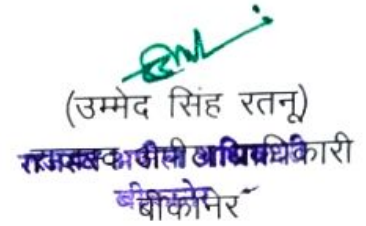 (उम्मेद सिंह रतनू)
राजस्व अपील अधिकारी
बीकानेर